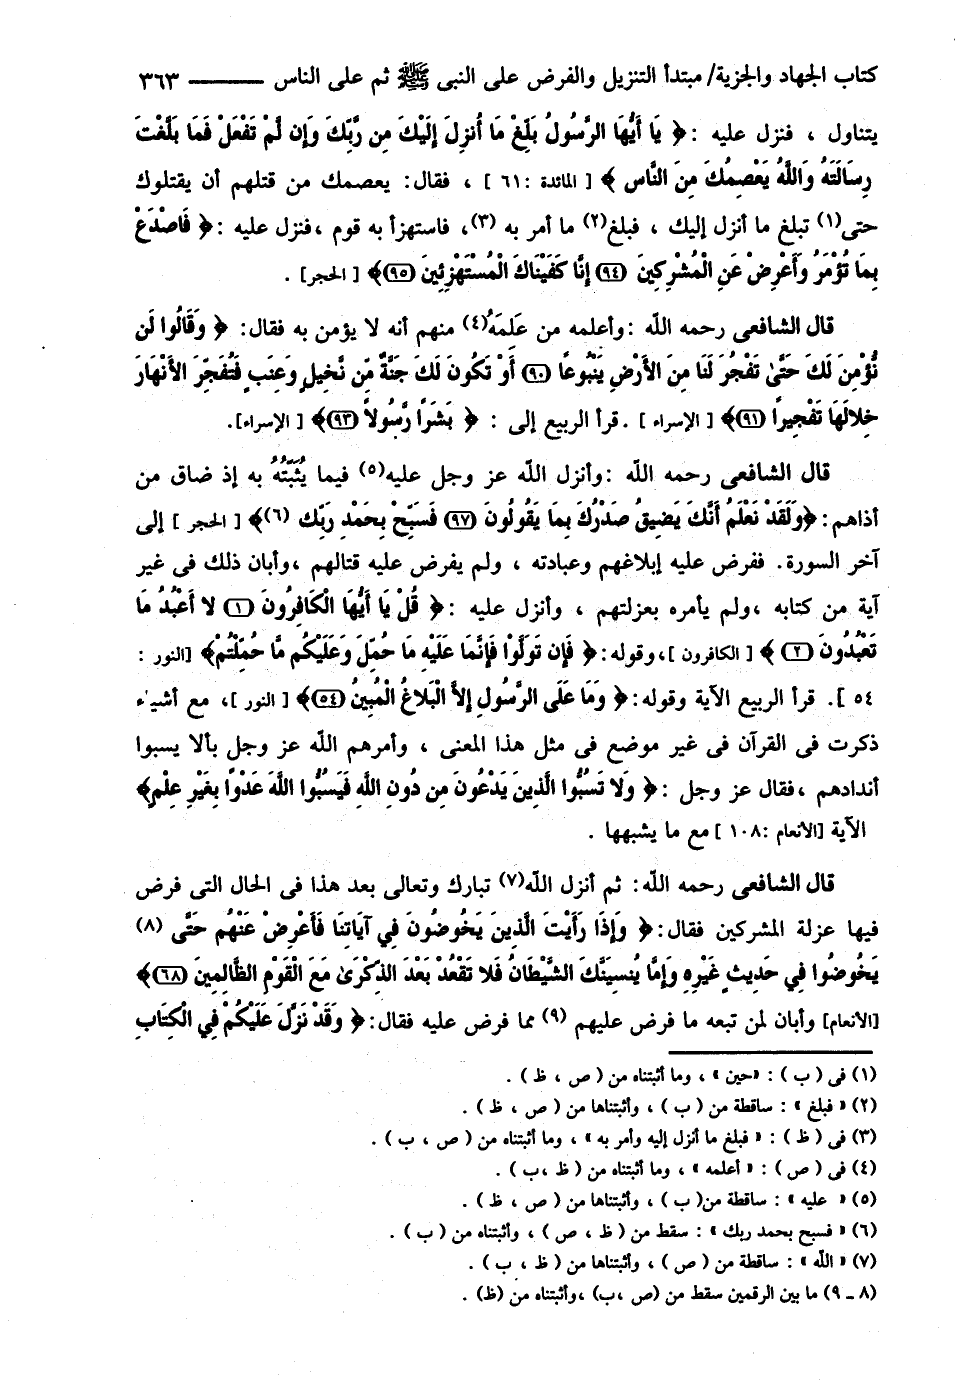 كتاب الجهاد والجزية/ مبتدأ التنزيل والفرض على النبى ﷺ ثم على الناس ـــــــ ٣٦٣
يتناول ، فنزل عليه :﴿ يَا أَيُّهَا الرَّسُولُ بَلِّغْ مَا أُنزِلَ إِلَيْكَ مِن رَّبِّكَ وَإِن لَّمْ تَفْعَلْ فَمَا بَلَّغْتَ
رِسَالَتَهُ وَاللَّهُ يَعْصِمُكَ مِنَ النَّاسِ ﴾ [ المائدة :٦١ ] ، فقال: يعصمك من قتلهم أن يقتلوك
حتى(١) تبلغ ما أنزل إليك ، فبلغ(٢) ما أمر به (٣)، فاستهزأ به قوم ،فنزل عليه :﴿ فَاصْدَعْ
بِمَا تُؤْمَرُ وَأَعْرِضْ عَنِ الْمُشْرِكِينَ (٩٤) إِنَّا كَفَيْنَاكَ الْمُسْتَهْزِئِينَ (٩٥)﴾ [ الحجر] .
قال الشافعى رحمه اللّه :وأعلمه من عَلِمَهُ(٤) منهم أنه لا يؤمن به فقال: ﴿ وَقَالُوا لَن
نُّؤْمِنَ لَكَ حَتَّىٰ تَفْجُرَ لَنَا مِنَ الأَرْضِ يَنْبُوعًا (٩٠) أَوْ تَكُونَ لَكَ جَنَّةٌ مِّن نَّخِيلٍ وَعِنَبٍ فَتُفَجِّرَ الأَنْهَارَ
خِلالَهَا تَفْجِيرًا (٩١)﴾ [ الإسراء ] .قرأ الربيع إلى : ﴿ بَشَرًا رَّسُولاً (٩٣)﴾ [ الإسراء].
قال الشافعى رحمه اللّه :وأنزل اللّه عز وجل عليه(٥) فيما يُثَبِّتُهُ به إذ ضاق من
أذاهم: ﴿وَلَقَدْ نَعْلَمُ أَنَّكَ يَضِيقُ صَدْرُكَ بِمَا يَقُولُونَ (٩٧) فَسَبِّحْ بِحَمْدِ رَبِّكَ (٦)﴾ [ الحجر ] إلى
آخر السورة. ففرض عليه إبلاغهم وعبادته ، ولم يفرض عليه قتالهم ،وأبان ذلك فى غير
آية من كتابه ،ولم يأمره بعزلتهم ، وأنزل عليه :﴿ قُلْ يَا أَيُّهَا الْكَافِرُونَ (١) لا أَعْبُدُ مَا
تَعْبُدُونَ (٢) ﴾ [ الكافرون ]،وقوله:﴿ فَإِن تَوَلَّوْا فَإِنَّمَا عَلَيْهِ مَا حُمِّلَ وَعَلَيْكُم مَّا حُمِّلْتُمْ﴾ [النور :
٥٤ ]. قرأ الربيع الآية وقوله:﴿ وَمَا عَلَى الرَّسُولِ إِلاَّ الْبَلاغُ الْمُبِينُ (٥٤)﴾ [ النور ]، مع أشياء
ذكرت فى القرآن فى غير موضع فى مثل هذا المعنى ، وأمرهم اللّه عز وجل بألا يسبوا
أندادهم ،فقال عز وجل :﴿ وَلا تَسُبُّوا الَّذِينَ يَدْعُونَ مِن دُونِ اللَّهِ فَيَسُبُّوا اللَّهَ عَدْوًا بِغَيْرِ عِلْمٍ﴾
الآية [الأنعام :١٠٨ ] مع ما يشبهها .
قال الشافعى رحمه اللّه: ثم أنزل اللّه(٧) تبارك وتعالى بعد هذا فى الحال التى فرض
فيها عزلة المشركين فقال:﴿ وَإِذَا رَأَيْتَ الَّذِينَ يَخُوضُونَ فِي آيَاتِنَا فَأَعْرِضْ عَنْهُمْ حَتَّى (٨)
يَخُوضُوا فِي حَدِيثٍ غَيْرِهِ وَإِمَّا يُنسِيَنَّكَ الشَّيْطَانُ فَلا تَقْعُدْ بَعْدَ الذِّكْرَىٰ مَعَ الْقَوْمِ الظَّالِمِينَ (٦٨)﴾
[الأنعام] وأبان لمن تبعه ما فرض عليهم (٩) مما فرض عليه فقال:﴿ وَقَدْ نَزَّلَ عَلَيْكُمْ فِي الْكِتَابِ
(١) فى ( ب ) : «حين » ، وما أثبتناه من ( ص ، ظ ) .
(٢) « فبلغ » : ساقطة من ( ب ) ، وأثبتناها من ( ص ، ظ ) .
(٣) فى ( ظ ) : « فبلغ ما أنزل إليه وأمر به » ، وما أثبتناه من ( ص ، ب ) .
(٤) فى ( ص ) : « أعلمه » ، وما أثبتناه من ( ظ ،ب ) .
(٥) « عليه » : ساقطة من( ب ) ، وأثبتناها من ( ص ، ظ ) .
(٦) « فسبح بحمد ربك » : سقط من ( ظ ، ص ) ، وأثبتناه من ( ب ) .
(٧) « اللّه » : ساقطة من ( ص ) ، وأثبتناها من ( ظ ، ب ) .
(٨ ـ ٩) ما بين الرقمين سقط من (ص ،ب) ،وأثبتناه من (ظ) .